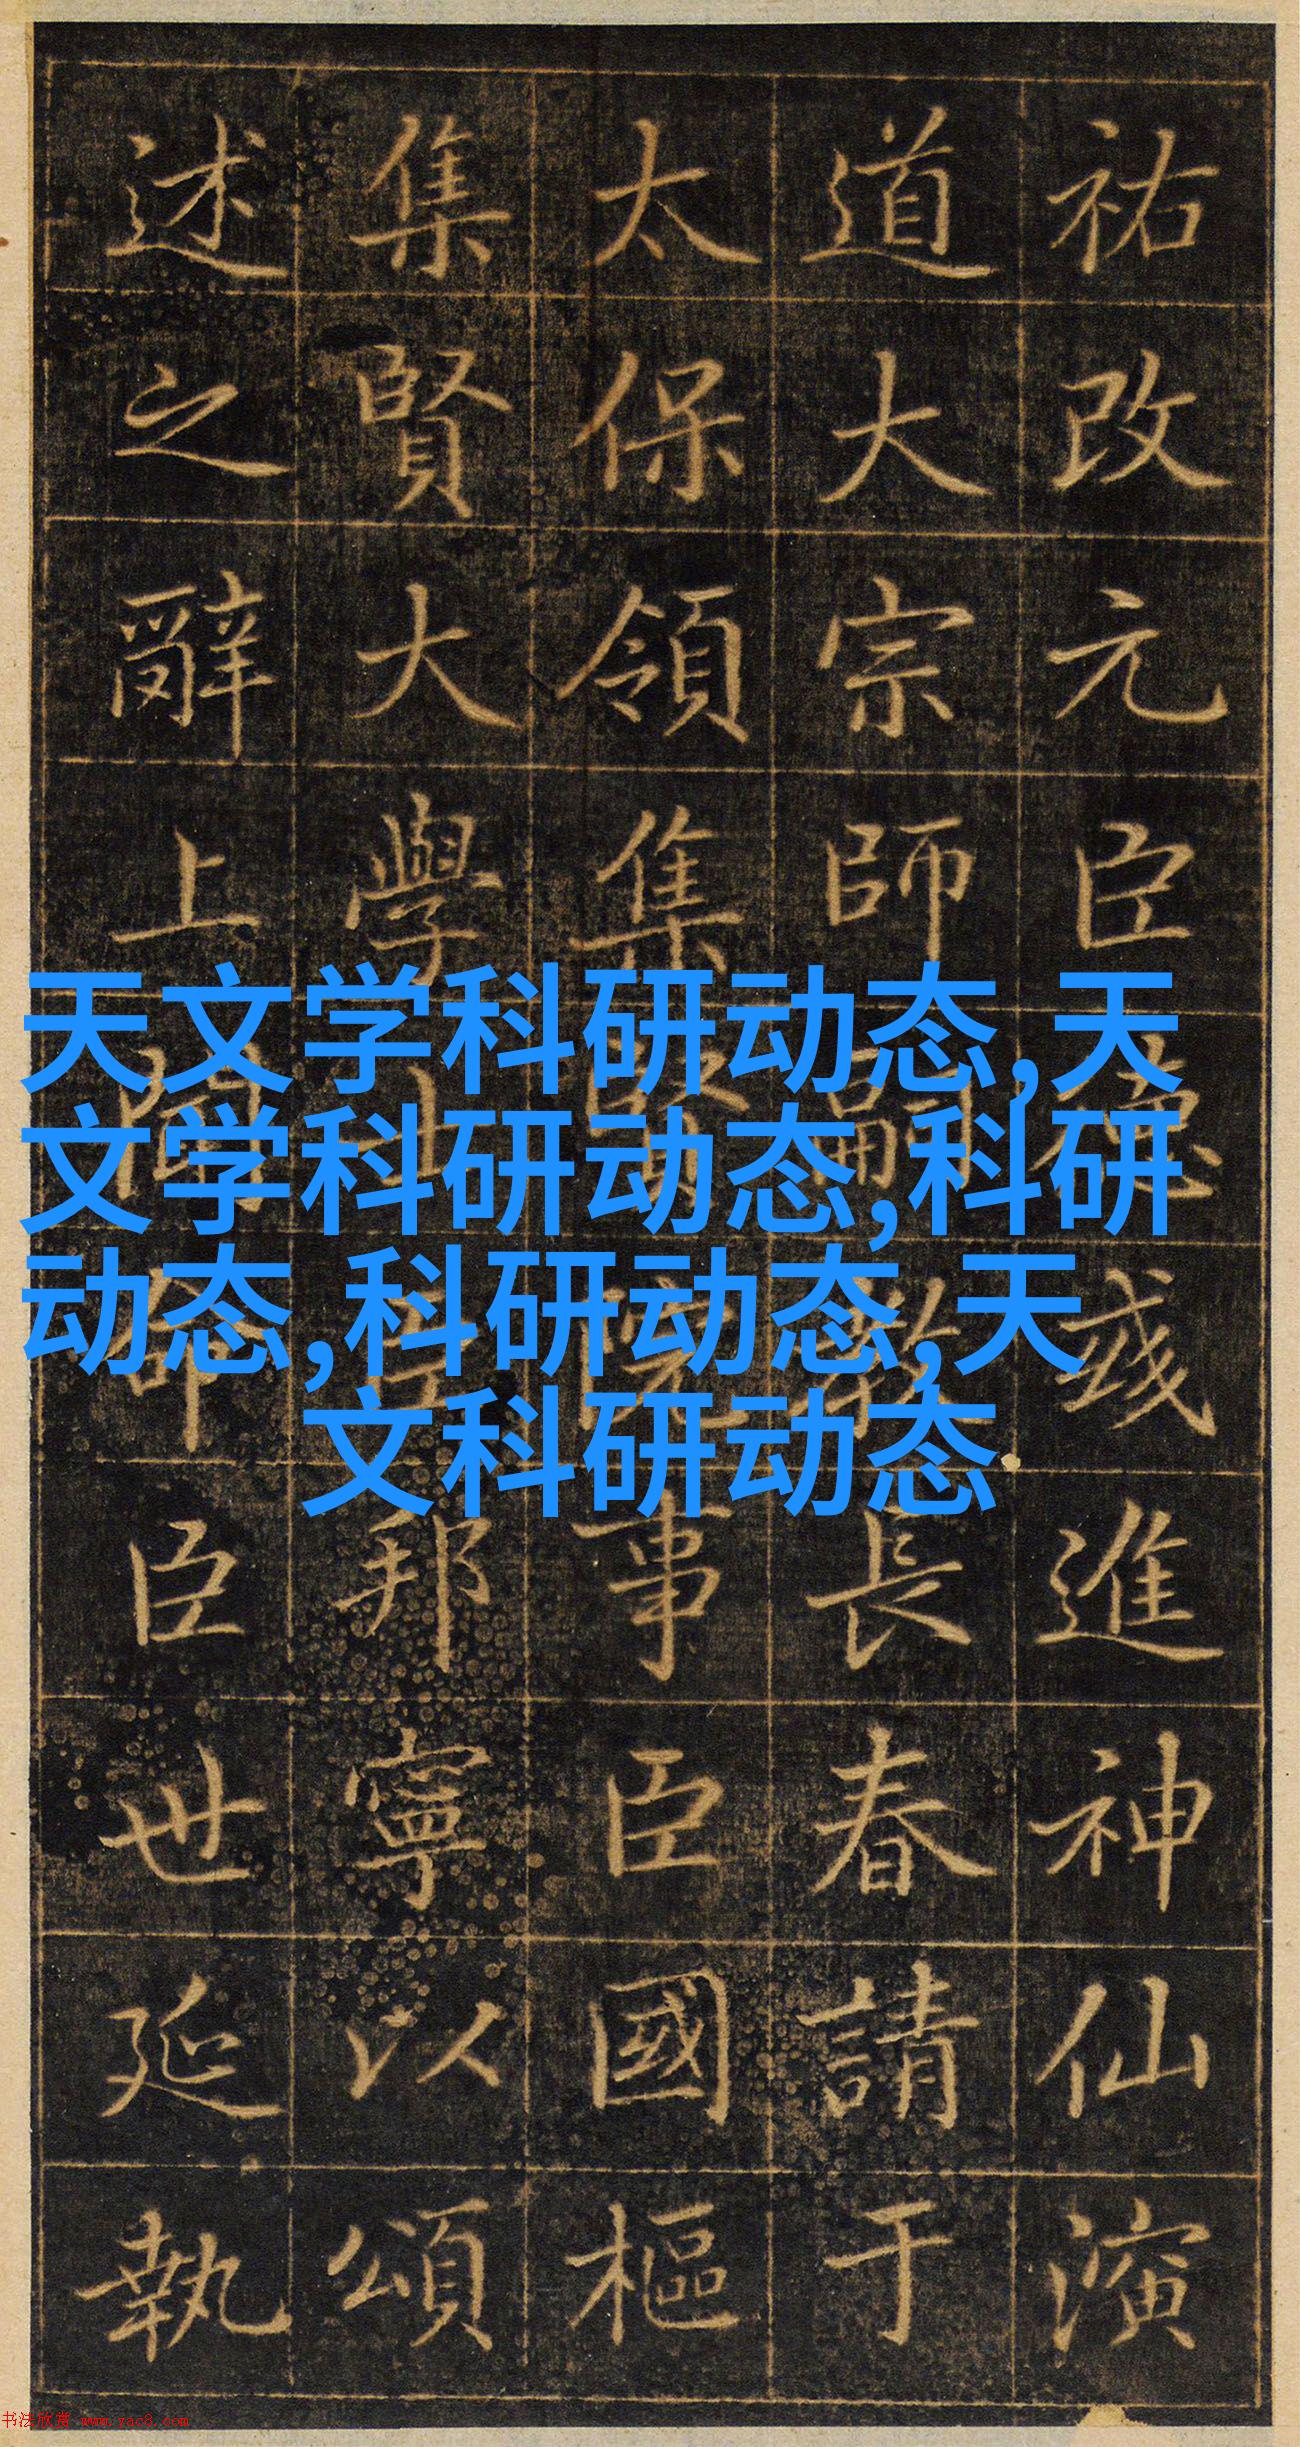 祐改元臣德彧進神仙演
道大宗師嗣教長春請于
太保領集賢院事臣國樞
集賢大學士臣邦寧以頌
述之辭上聞命臣世延執
天文学科研动态,天
文学科研动态,科研
动态,科研动态,天
文科研动态
书法欣赏 www.yac8.com